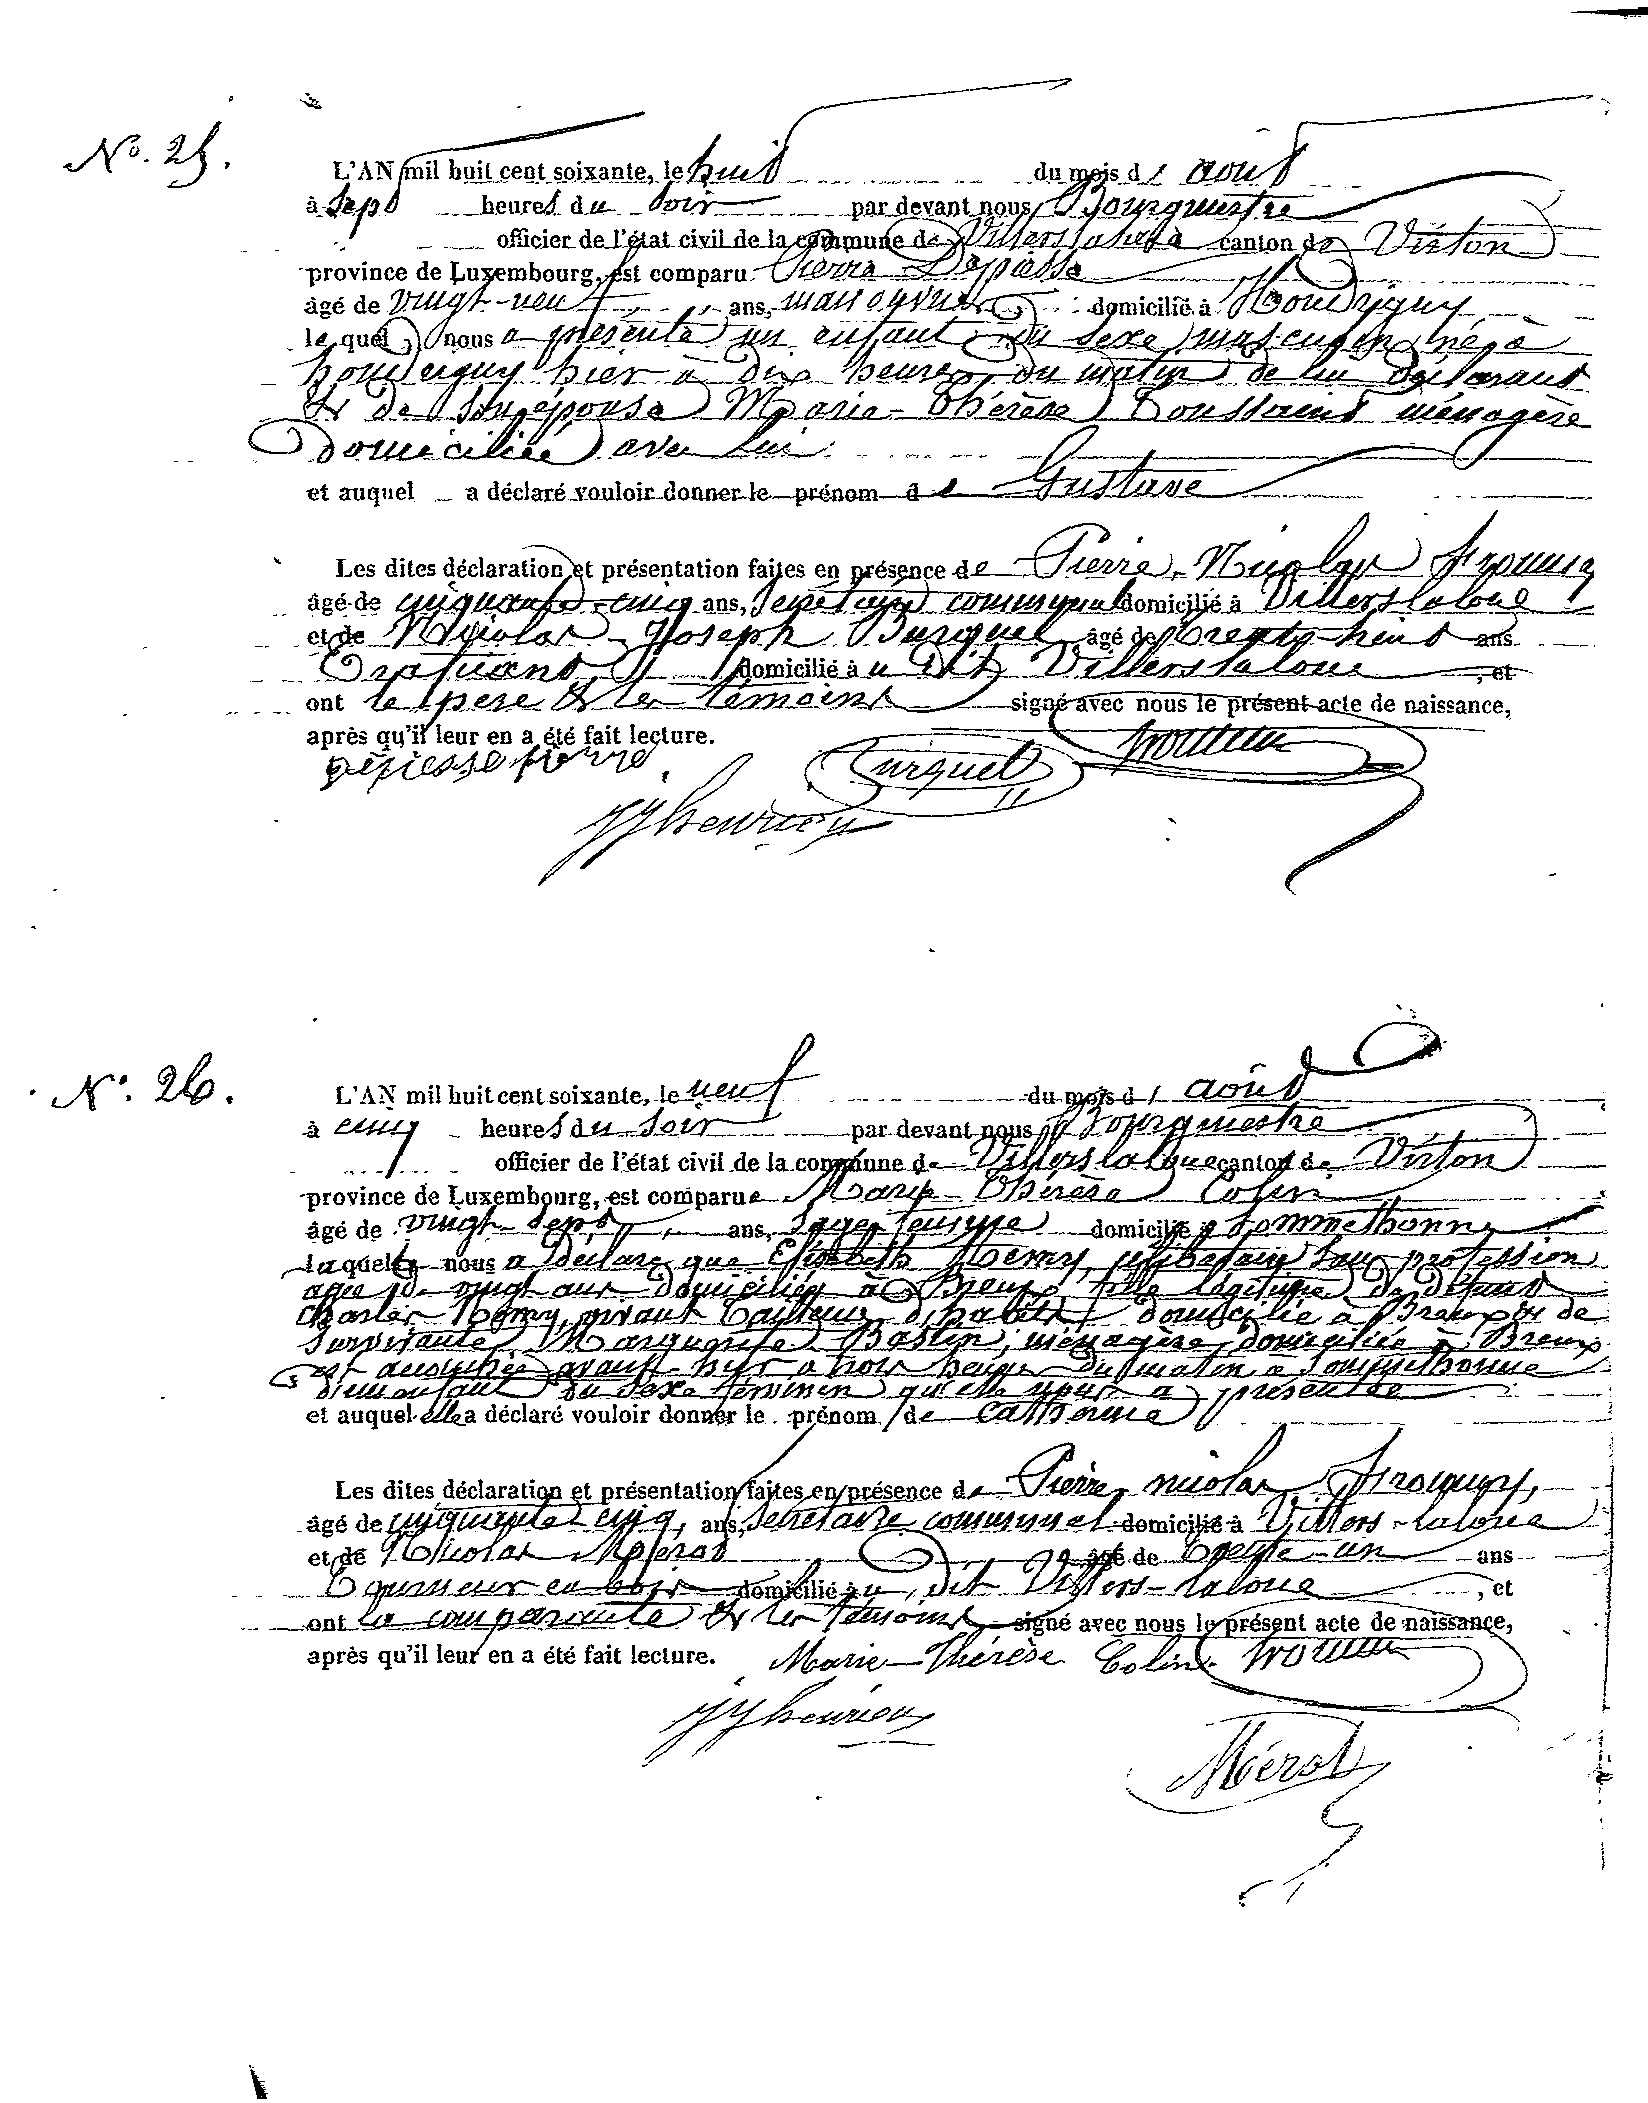 No. 25.
L'AN mil huit cent soixante, le huit du mois d' août
à sept heures du soir par devant nous Bourgmestre
officier de l'état civil de la commune de Villers la loue canton de Virton
province de Luxembourg, est comparu Pierre Depiesse
âgé de vingt-neuf ans, manoeuvre domicilié à Houdrigny
le quel nous a présenté un enfant du sexe masculin, né à
houdrigny hier à dix heures du matin de lui déclarant
& de son épouse Marie-Thérèse Toussaint ménagère
domiciliée avec lui
et auquel a déclaré vouloir donner le prénom de Gustave
Les dites déclaration et présentation faites en présence de Pierre, Nicolas
âgé de cinquante-cinq ans, secrétaire communal domicilié à Villers la loue
et de Nicolas-Joseph Burquel âgé de trente-huit ans
domicilié à u dit Villers la loue, et
ont le père & les témoins signé avec nous le présent acte de naissance,
après qu'il leur en a été fait lecture.
Depiesse pierre
Burquel
N°. 26.
L'AN mil huit cent soixante, le neuf du mois d' août
à cinq heures du soir par devant nous Bourgmestre
officier de l'état civil de la commune de Villers la loue canton de Virton
province de Luxembourg, est comparue Marie-Thérèse Colin
âgé de vingt-sept ans, sage femme domicilié à Sommethonne
laquelle nous a déclaré que Elisabeth Remy, célibataire sans profession
agée de vingt ans domiciliée à Breux, fille légitime de défunt
Charles Remy, vivant tailleur d'habits, domicilié à Breux & de
survivante Marguerite Bastin, ménagère, domiciliée à Breux
est accouchée avant-hier à trois heures du matin à Sommethonne
d'un enfant du sexe féminin qu'elle nous a présentée
et auquel elle a déclaré vouloir donner le prénom de Catherine
Les dites déclaration et présentation faites en présence de Pierre, nicolas
âgé de cinquante cinq, ans, secrétaire communal domicilié à Villers-laloue
et de Nicolas Mérot âgé de trente-un ans
domicilié à u dit Villers-laloue, et
ont la comparante & les témoins signé avec nous le présent acte de naissance,
après qu'il leur en a été fait lecture. Marie-Thérèse Colin
Mérot